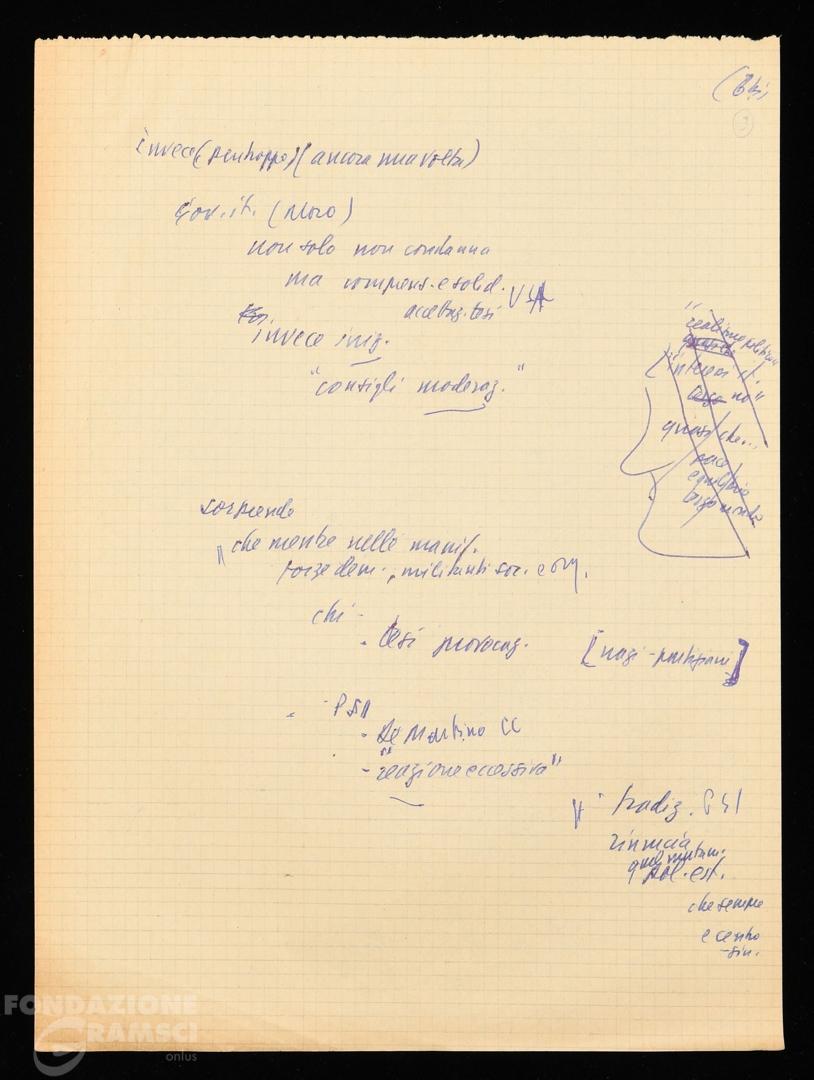 (3)
invece (purtroppo) (ancora una volta)
Gov. it. (Moro)
non solo non condanna
ma comprens. e solid.
accettaz. tesi USA
invece iniz.
"consigli moderaz."
"realismo politico
"interessi
no"
quasi che...
pace
equilibrio
sorprende
" che mentre nelle manif.
forze dem., militanti soc. e com.
chi -
- tesi provocaz.
[nazi - partigiani]
- PSI
- De Martino CC
- "reazione eccessiva"
" tradiz. PSI
rinuncia
pol. est.
che sempre
e centro
-sin.
FONDAZIONE
GRAMSCI
onlus